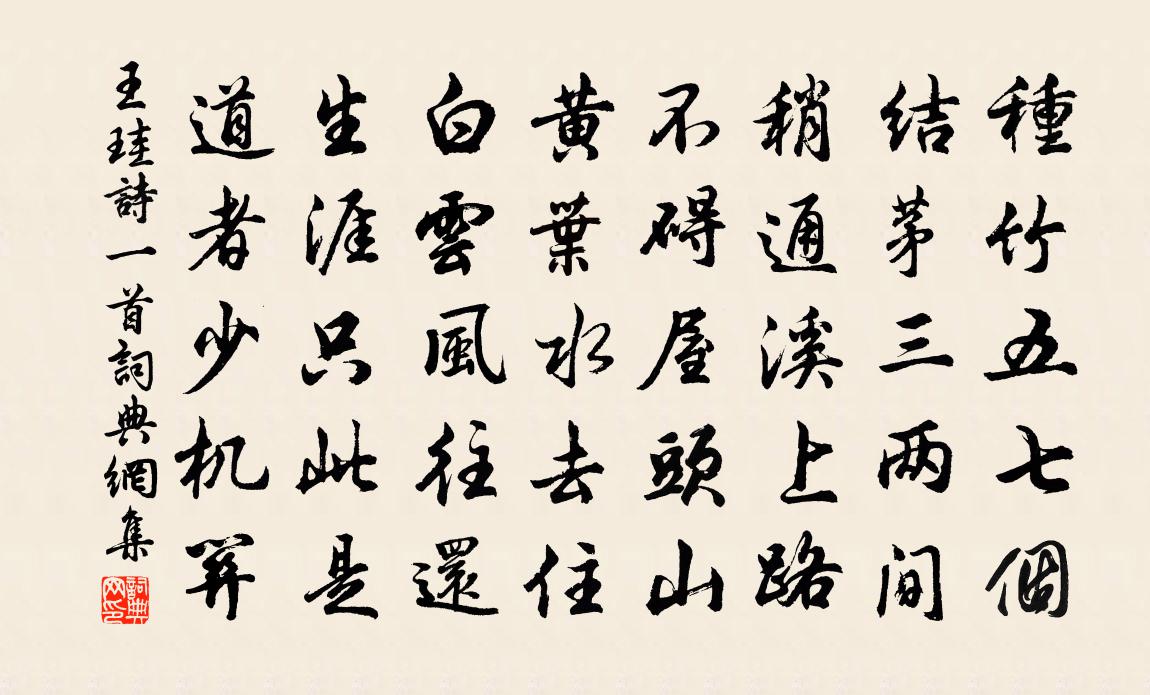 種竹五七個
結茅三两間
稍通溪上路
不碍屋頭山
黄葉水去住
白雲風往還
生涯只此是
道者少机関
王珪詩一首詞典網集
詞典网印